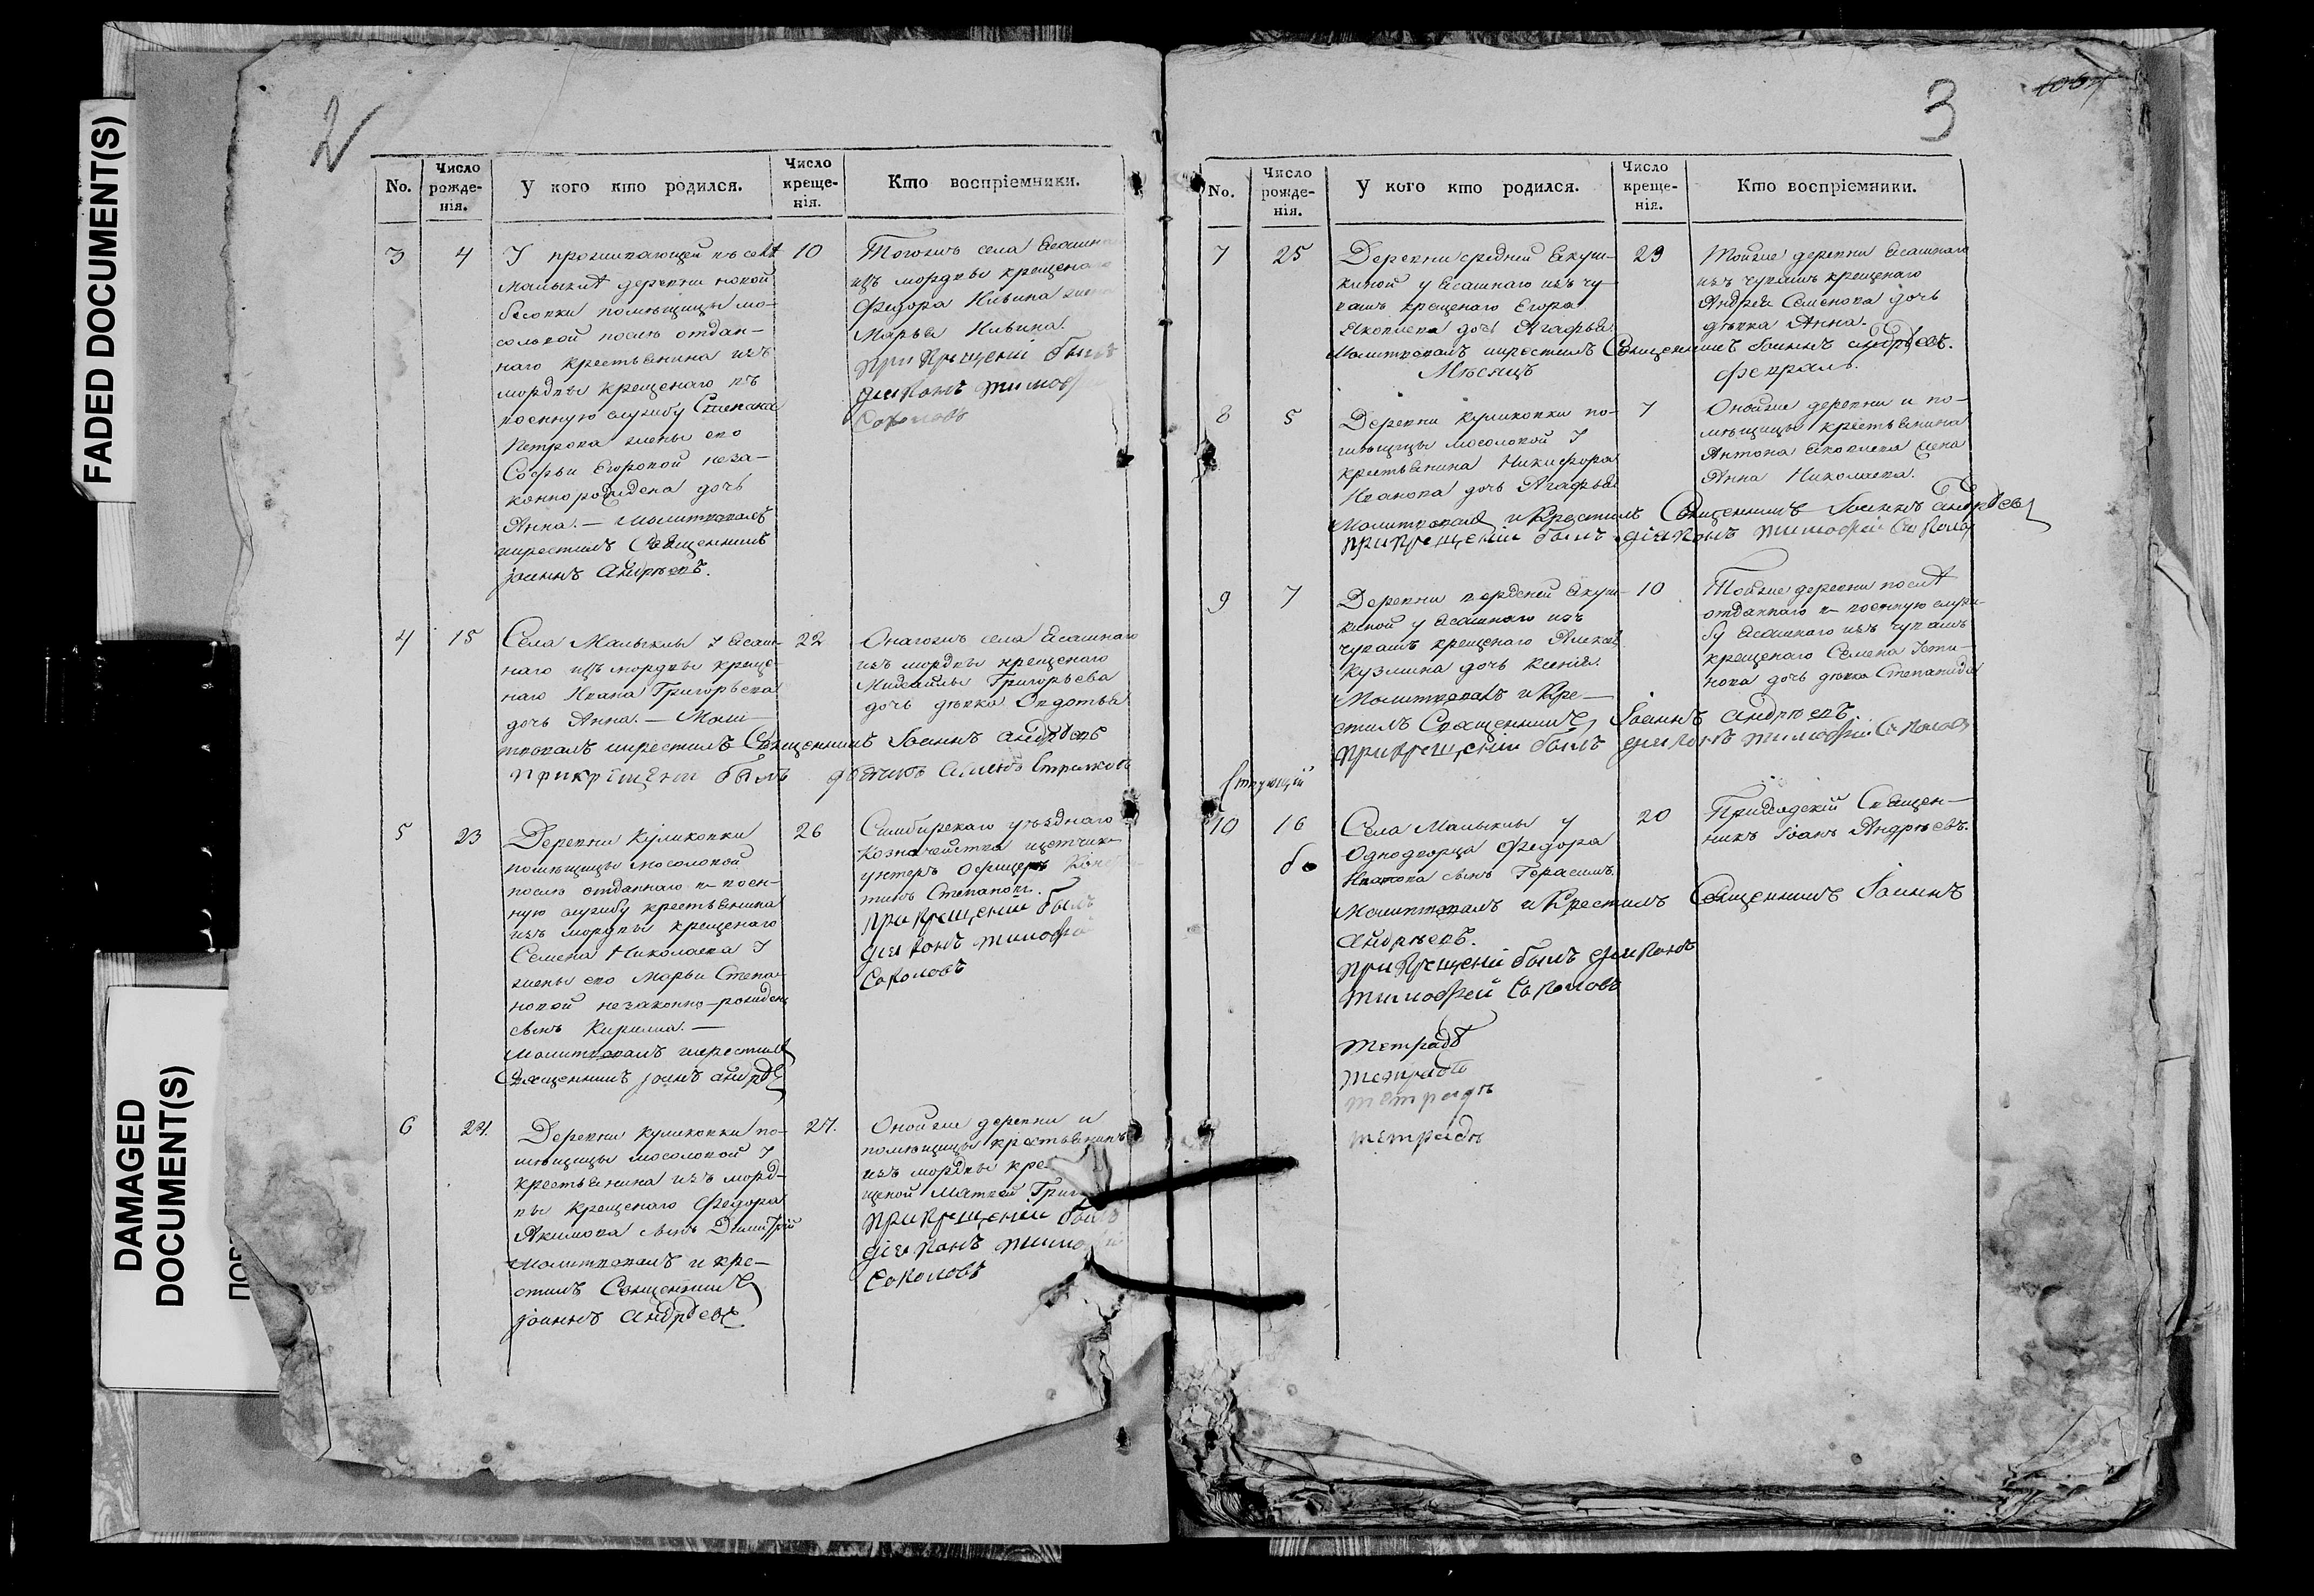 FADED DOCUMENT(S)
DAMAGED
DOCUMENT(S)
2
No.
Число рожде-нія.
У кого кто родился.
Число креще-нія.
Кто воспріемники.
3 4
У проживающей въ селѣ
малыклѣ деревни новой
помѣщицы мо-
соловой послѣ отдан-
наго крестьянина изъ
мордвы крещенаго въ
военную службу Степана
Петрова жены его
Софьи Егоровой неза-
коннорождена дочь
Анна. — Молитвовалъ
икрестилъ Священникъ
Іоаннъ Андрѣевъ.
10
Тогожъ села Ясашна
изъ мордвы крещенаго
Федора Ильина жена
Марья Ильина.
при крещеніи былъ
діяконъ тимофей
Соколовъ
4 15
Села Малыклы у Ясаш-
наго изъ мордвы креще-
наго Ивана Григорьева
дочь Анна. — Моли-
твовалъ икрестилъ Священникъ Іоаннъ Андрѣевъ
прикрещени былъ дьячикъ Семенъ
22
Онагожъ села Ясашнаго
изъ мордвы крещенаго
Михайлы Григорьева
дочь дѣвка Овдотья
5 23
Деревни Куликовки
помѣщицы мосоловой
послѣ отданнаго в воен-
ную службу крестьянина
изъ мордвы крещенаго
Семена Николаева У
жены его Марьи Степа-
новой незаконно-рожденъ
сынъ Кирилла. —
Молитвовалъ икрестилъ
Священникъ Іоанъ андрѣ
26
Симбирскаго уѣзднаго
Козначейства щетчикъ
унтеръ Офицеръ
Степановъ.
при крещеніи былъ
діяконъ тимофей
Соколовъ
6 24.
Деревни Куликовки по-
мѣщицы мосоловой У
крестьянина изъ морд-
вы крещенаго Федора
Акимова сынъ Димитрій
молитвовалъ и кре-
стилъ Священникъ
Іоаннъ Андрѣевъ
27.
Оной же деревни и
помѣщицы крестьянинъ
изъ мордвы кре
щеной Матвей Григ
прикрещеніи былъ
діяконъ тимофей
Соколовъ
3
No.
Число рожде-нія.
У кого кто родился.
Число креще-нія.
Кто воспріемники.
7 25
Деревни средней Якуш-
киной у Ясашнаго изъ чу-
вашъ крещенаго Егора
Яковлева дочь Агафья
Молитвовалъ икрестилъ Священникъ Іоаннъ андрѣевъ.
29
Тойже деревни Ясашнаго
изъ чувашъ крещенаго
Андрея Семенова дочь
дѣвка Анна.
Мѣсяцъ февраль.
8 5
Деревни куликовки по-
мѣщицы мосоловой У
крестьянина Никифора
Иванова дочь Агафья
Молитвовалъ икрестилъ Священникъ Іоаннъ андрѣевъ
прикрещеніи былъ діяконъ тимофей Соколов
7
Онойже деревни и по-
мѣщицы крестьянина
Антона Яковлева жена
Анна Николаева.
9 7
Деревни середней Якуш-
киной у Ясашнаго изъ
чувашъ крещенаго Алексея
Кузмина дочь Ксенія.
Молитвовалъ и кре-
стилъ Священникъ Іоаннъ андрѣевъ
прикрещеніи былъ діяконъ тимофей Соколов
10
Тойже деревни послѣ
отданнаго в военную служ-
бу Ясашнаго изъ чувашъ
крещенаго Семена Усти-
нова дочь дѣвка Степанида
10 16
Села Малыклы у
Однодворца Федора
Иванова сынъ Герасимъ.
Молитвовалъ икрестилъ Священникъ Іоаннъ
андрѣевъ.
прикрещеніи былъ діяконъ
тимофей Соколовъ
20
Приходскій Священ-
никъ Іоанъ Андрѣевъ.
тетрадь
тетрадь
тетрадь
тетрадь